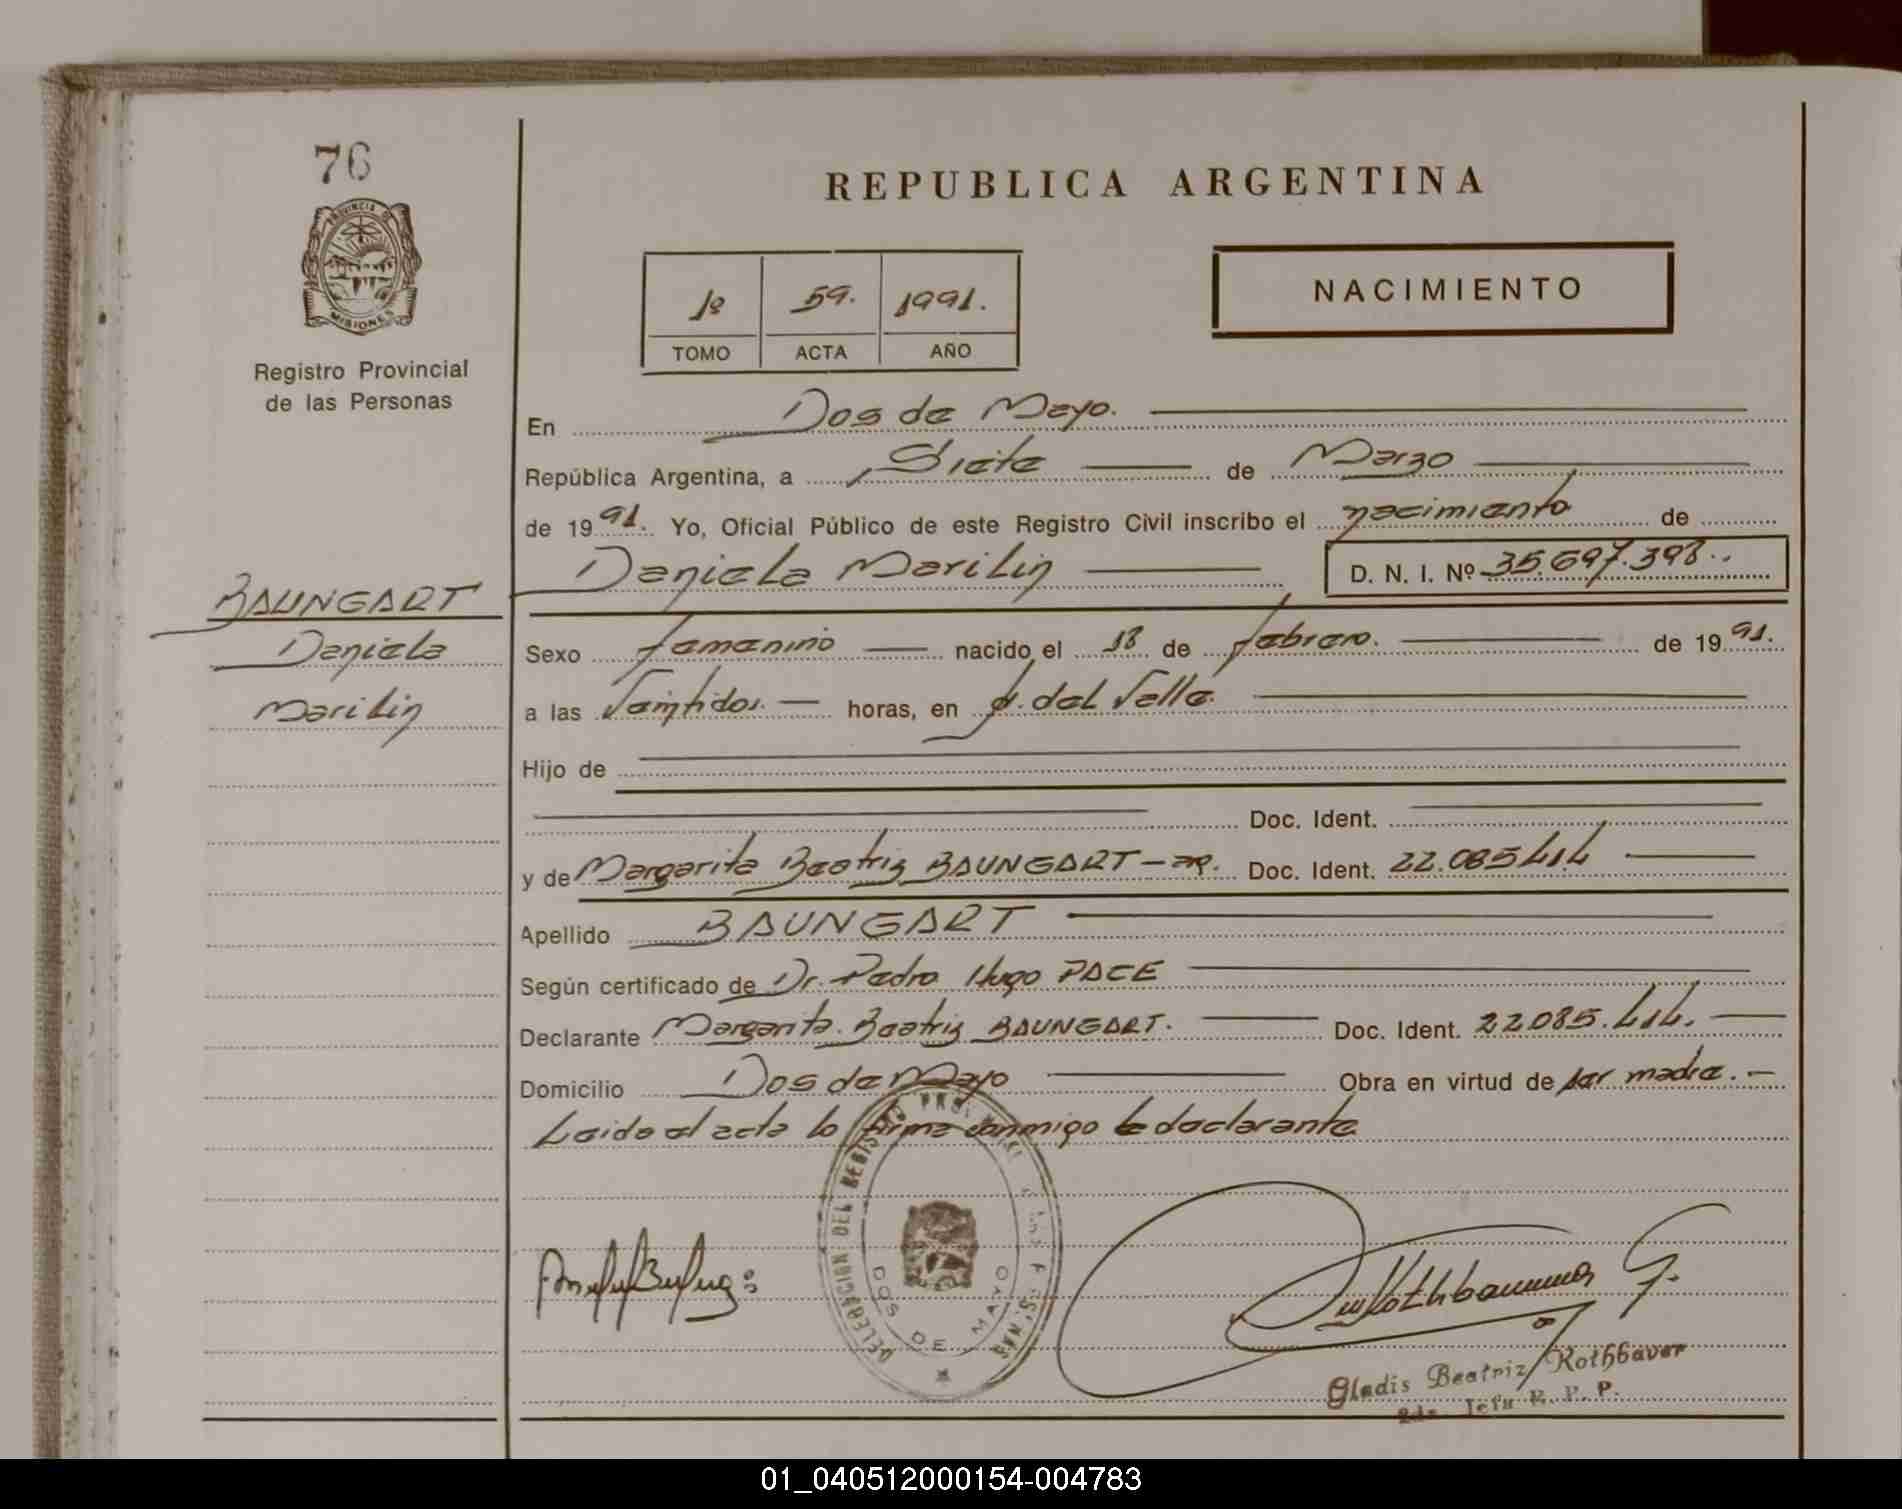 76
PROVINCIA DE
MISIONES
Registro Provincial
de las Personas
REPUBLICA ARGENTINA
1º 59. 1991.
TOMO ACTA AÑO
NACIMIENTO
En Dos de Mayo.
República Argentina, a Siete de Marzo
de 1991. Yo, Oficial Público de este Registro Civil inscribo el nacimiento de
Daniela Marilin D. N. I. Nº 35.697.398..
BAUNGART
Daniela
Marilin
Sexo femenino nacido el 18 de febrero. de 1991.
a las Veintidos. horas, en J. del Valle.
Hijo de
Doc. Ident.
y de Margarita Beatriz BAUNGART - ar. Doc. Ident. 22.085414
Apellido BAUNGART
Según certificado de Dr. Pedro Hugo PACE
Declarante Margarita Beatriz BAUNGART. Doc. Ident. 22085.414.
Domicilio Dos de Mayo Obra en virtud de ser madre. -
Leida el acta lo firma conmigo la declarante
DELEGACION DEL REGISTRO PROV.
DOS DE MAYO
Gladis Beatriz Rothbauer
R. P. P.
01_040512000154-004783